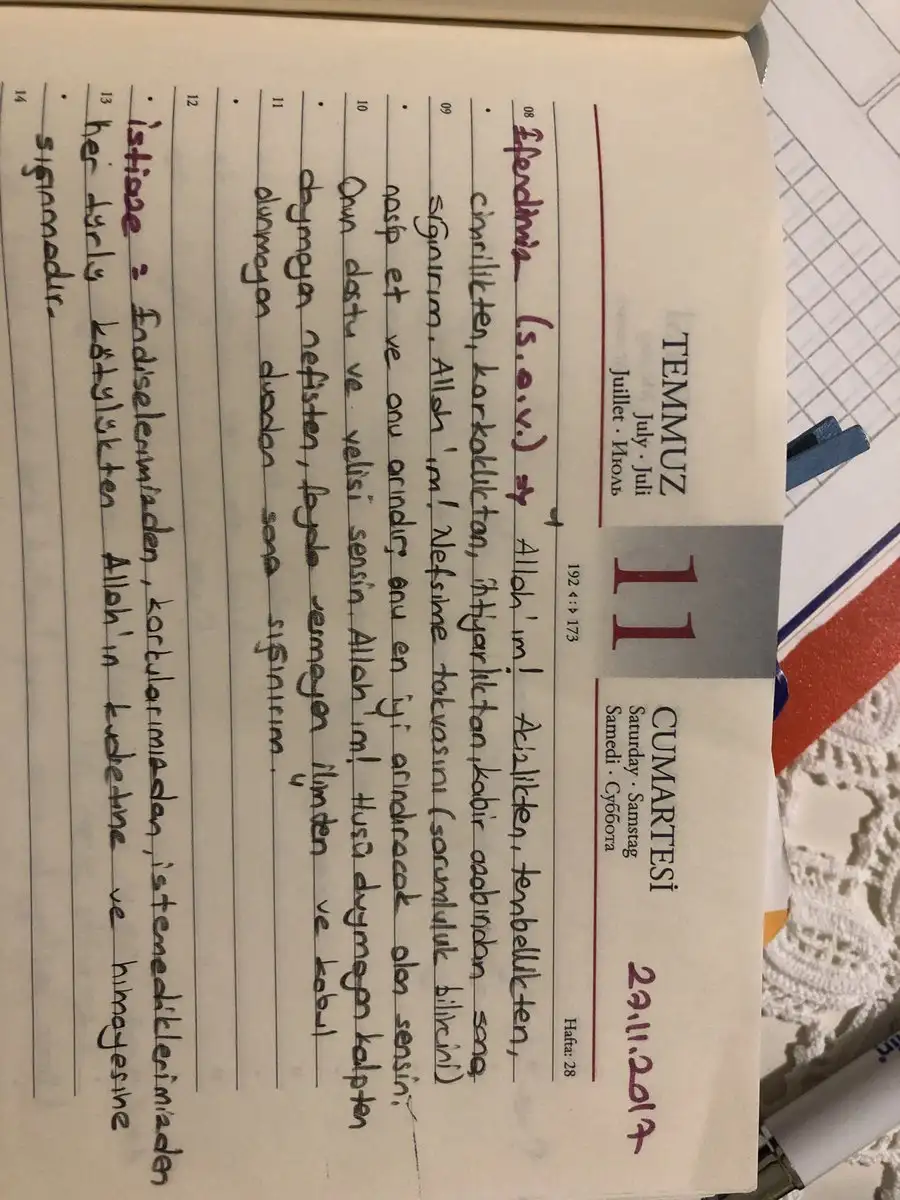 TEMMUZ
July · Juli
Juillet · Июль
11
CUMARTESİ
Saturday · Samstag
Samedi · Суббота
22.11.2017
192 173
Hafta: 28
08 Efendimiz (s.a.v.) ⇒ "Allah'ım! Acizlikten, tembellikten,
cimrilikten, korkaklıktan, ihtiyarlıktan, kabir azabından sana
09 sığınırım. Allah'ım! Nefsime takvasını (sorumluluk bilincini)
nasip et ve onu arındır; onu en iyi arındıracak olan sensin;
10 Onun dostu ve velisi sensin Allah'ım! Husû duymayan kalpten
doymayan nefisten, fayda vermeyen ilimden ve kabul
11 olunmayan duadan sana sığınırım."
12
istiaze = Endiselerimizden, korkularımızdan, istemediklerimizden
13 her türlü kötülükten Allah'ın kudretine ve himayesine
sığınmadır.
14